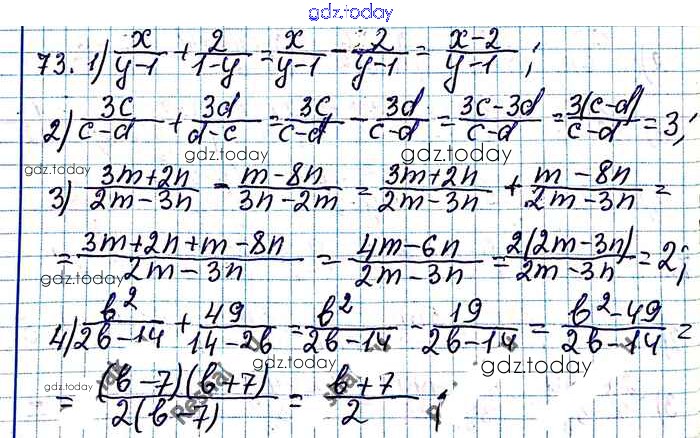 gdz.today
73. 1) x/(y-1) + 2/(1-y) = x/(y-1) - 2/(y-1) = (x-2)/(y-1);
2) 3c/(c-d) + 3d/(d-c) = 3c/(c-d) - 3d/(c-d) = (3c-3d)/(c-d) = 3(c-d)/(c-d) = 3;
gdz.today gdz.today gdz.today
3) (3m+2n)/(2m-3n) - (m-8n)/(3n-2m) = (3m+2n)/(2m-3n) + (m-8n)/(2m-3n) =
= (3m+2n+m-8n)/(2m-3n) = (4m-6n)/(2m-3n) = 2(2m-3n)/(2m-3n) = 2;
gdz.today gdz.today
4) b²/(2b-14) + 49/(14-2b) = b²/(2b-14) - 19/(2b-14) = (b²-49)/(2b-14) =
gdz.today gdz.today
= (b-7)(b+7)/2(b-7) = (b+7)/2;